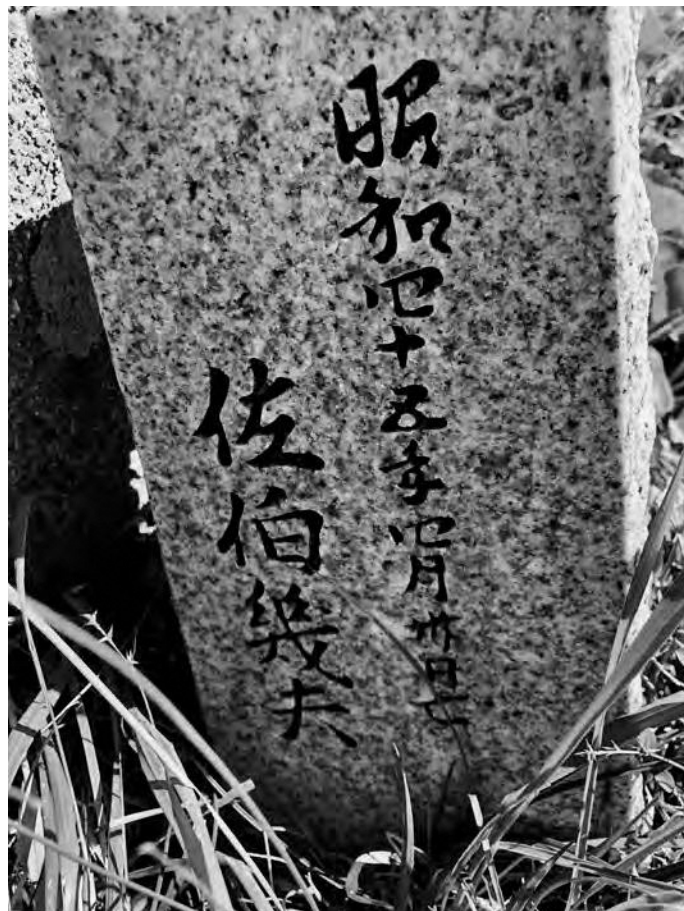 昭和四十五年四月卅日亡
佐伯幾夫